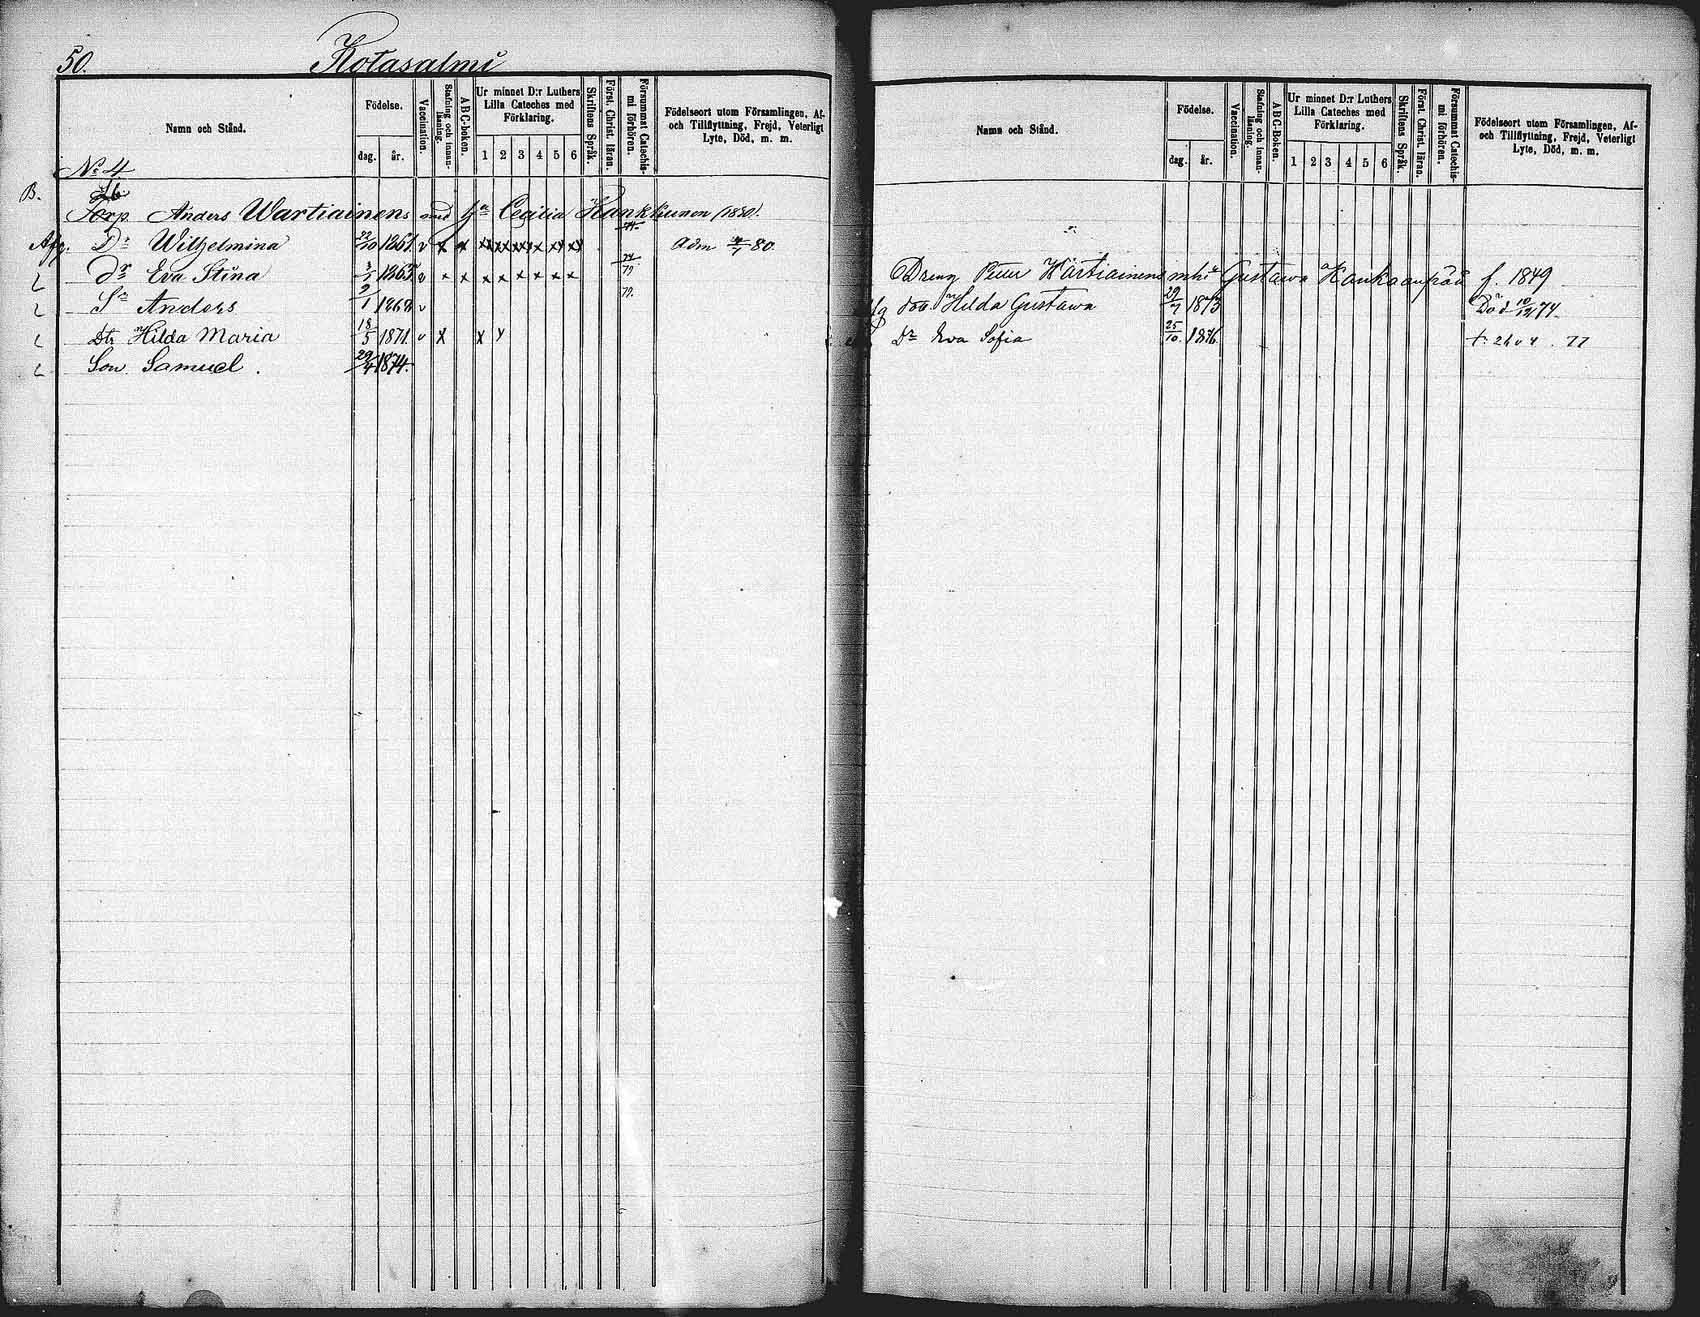 50. Kotasalmi
Namn och Stånd.
Födelse.
dag. år.
Vaccination.
Stafning och innanläsning.
A B C-boken.
Ur minnet D:r Luthers Lilla Cateches med Förklaring.
1 2 3 4 5 6
Skriftens Språk.
Först. Christ. läran.
Försummat Catechismi förhören.
Födelseort utom Församlingen, Af- och Tillflyttning, Frejd, Veterligt Lyte, Död, m. m.
No 4
B. Torp. Anders Wartiainens med Cecilia (1830).
Afg. Dr Wilhelmina 22/10 1861. v x x xx xx xx x xx xx Adm 80
L dr Eva Stina 1865. v x x x x x x x x 79
L Sn Anders 1 1868 v 79.
L Dtr Hilda Maria 18/5 1871. v x x x
L Son Samuel. 29/4 1874.
Namn och Stånd.
Födelse.
dag. år.
Vaccination.
Stafning och innanläsning.
A B C-Boken.
Ur minnet D:r Luthers Lilla Cateches med Förklaring.
1 2 3 4 5 6
Skriftens Språk.
Först Christ. läran.
Försummat Catechismi förhören.
Födelseort utom Församlingen, Af- och Tillflyttning, Frejd, Veterligt Lyte, Död, m. m.
Dreng Petter Wartiainens Gustava Kaukaanpää f. 1849
Hilda Gustava 29/7 1873 Död 10/12 74.
Dr Eva Sofia 25/10 1876. 77